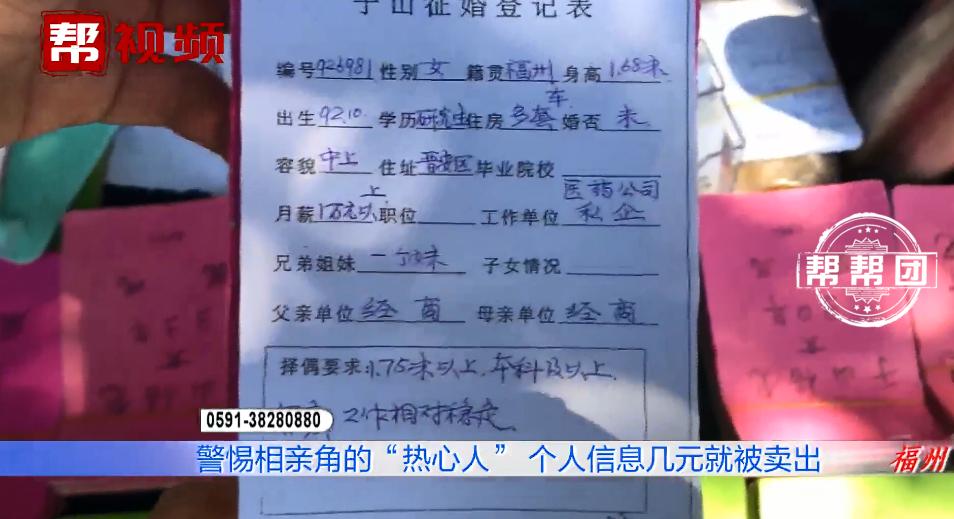 帮视频
于山征婚登记表
编号926981 性别女 籍贯福州 身高1.68米
车
出生92.10. 学历研究生住房多套 婚否未
容貌中上 住址晋安区毕业院校
上 医药公司
月薪1万元以职位 工作单位私企
兄弟姐妹一 妹 子女情况
父亲单位经商 母亲单位经商
择偶要求:1.75米以上,本科及以上,
工作相对稳定
帮帮团
0591-38280880
警惕相亲角的“热心人” 个人信息几元就被卖出
福州